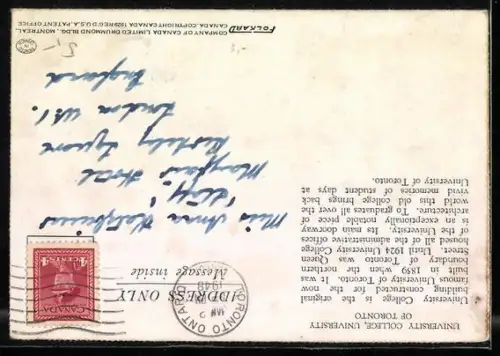 UNIVERSITY COLLEGE, UNIVERSITY
OF TORONTO
University College is the original
building constructed for the
University of Toronto. It was
built in 1859 when the northern
boundary of Toronto was Queen
Street. Until 1924 University College
housed all of the administrative offices
of the University. Its main doorway
is an exceptionally notable piece of
architecture. To graduates all over the
world this old college brings back
vivid memories of student days at
University of Toronto.
ADDRESS ONLY
Message inside
TORONTO ONTARIO
2
1948
CANADA
4
Miss Anna
Mayfair Hotel
Berkeley Square
London W.1.
England
5/-
FOLKARD
COMPANY OF CANADA LIMITED DRUMMOND BLDG., MONTREAL,
CANADA. COPYRIGHT CANADA 1929 REG'D U.S.A. PATENT OFFICE